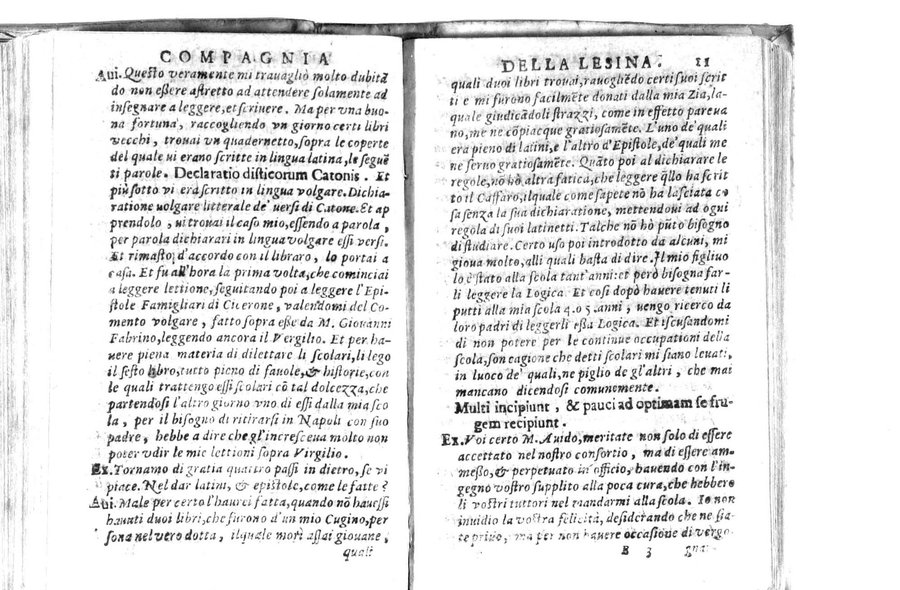 COMPAGNIA
Aui. Questo veramente mi trauagliò molto dubitā
do non eßere aſtretto ad attendere ſolamente ad
inſegnare a leggere, et ſcriuere. Ma per vna buo-
na fortuna, raccogliendo vn giorno certi libri
vecchi, trouai vn quadernetto, ſopra le coperte
del quale ui erano ſcritte in lingua latina, le ſeguē
ti parole. Declaratio diſticorum Catonis. Et
più ſotto vi era ſcritto in lingua volgare. Dichia-
ratione uolgare litterale de' uerſi di Catone. Et ap
prendolo, ui trouai il caſo mio, eſſendo a parola,
per parola dichiarati in lingua volgare eſſi verſi.
Et rimaſto d'accordo con il libraro, lo portai a
caſa. Et fu all'hora la prima volta, che cominciai
a leggere lettione, ſeguitando poi a leggere l'Epi-
ſtole Famigliari di Cicerone, valendomi del Co-
mento volgare, fatto ſopra eße da M. Giouanni
Fabrino, leggendo ancora il Vergilio. Et per ha-
uere piena materia di dilettare li ſcolari, li lego
il ſeſto libro, tutto pieno di fauole, & hiſtorie, con
le quali trattengo eſſi ſcolari cō tal dolcezza, che
partendoſi l'altro giorno vno di eſſi dalla mia ſco
la, per il biſogno di ritirarſi in Napoli con ſuo
padre, hebbe a dire che gl'increſceua molto non
poter vdir le mie lettioni ſopra Virgilio.
Ex. Tornamo di gratia quattro paſſi in dietro, ſe vi
piace. Nel dar latini, & epiſtole, come le fatte?
Aui. Male per certo l'haurei fatta, quando nō haueſſi
hauuti duoi libri, che furono d'un mio Cugino, per
ſona nel vero dotta, il quale morì aſſai giouane,
quali
DELLA LESINA. 11
quali duoi libri trouai, raucogliēdo certi ſuoi ſcrit
ti e mi furono facilmēte donati dalla mia Zia, la-
quale giudicādoli ſtrazzi, come in effetto pareua
no, me ne cōpiacque gratioſamēte. L'uno de' quali
era pieno di latini, e l'altro d'Epiſtole, de' quali me
ne ſeruo gratioſamēte. Quāto poi al dichiarare le
regole, nō hò altra fatica, che leggere q̃llo ha ſcrit
to il Caffaro, ilquale come ſapete nō ha laſciata co
ſa ſenza la ſua dichiaratione, mettendoui ad ogni
regola di ſuoi latinetti. Talche nō hò pūto biſogno
di ſtudiare. Certo uſo poi introdotto da alcuni, mi
gioua molto, alli quali baſta di dire. Il mio figliuo
lo è ſtato alla ſcola tant'anni: et però biſogna far-
li leggere la Logica. Et coſi dopò hauere tenuti li
putti alla mia ſcola 4. o 5. anni, uengo ricerco da
loro padri di leggerli eßa Logica. Et iſcuſandomi
di non potere per le continue occupationi della
ſcola, ſon cagione che detti ſcolari mi ſiano leuati,
in luoco de' quali, ne piglio de gl'altri, che mai
mancano dicendoſi comunemente.
Multi incipiunt, & pauci ad optimam ſe fru-
gem recipiunt.
Ex. Voi certo M. Auido, meritate non ſolo di eſſere
accettato nel noſtro conſortio, ma di eſſere am-
meßo, & perpetuato in officio, hauendo con l'in-
gegno voſtro ſupplito alla poca cura, che hebbero
li voſtri tuttori nel mandarmi alla ſcola. Io non
inuidio la voſtra felicità, deſiderando che ne ſia-
te priuo, ma per non hauere occaſione di vergo
B 3 gna-